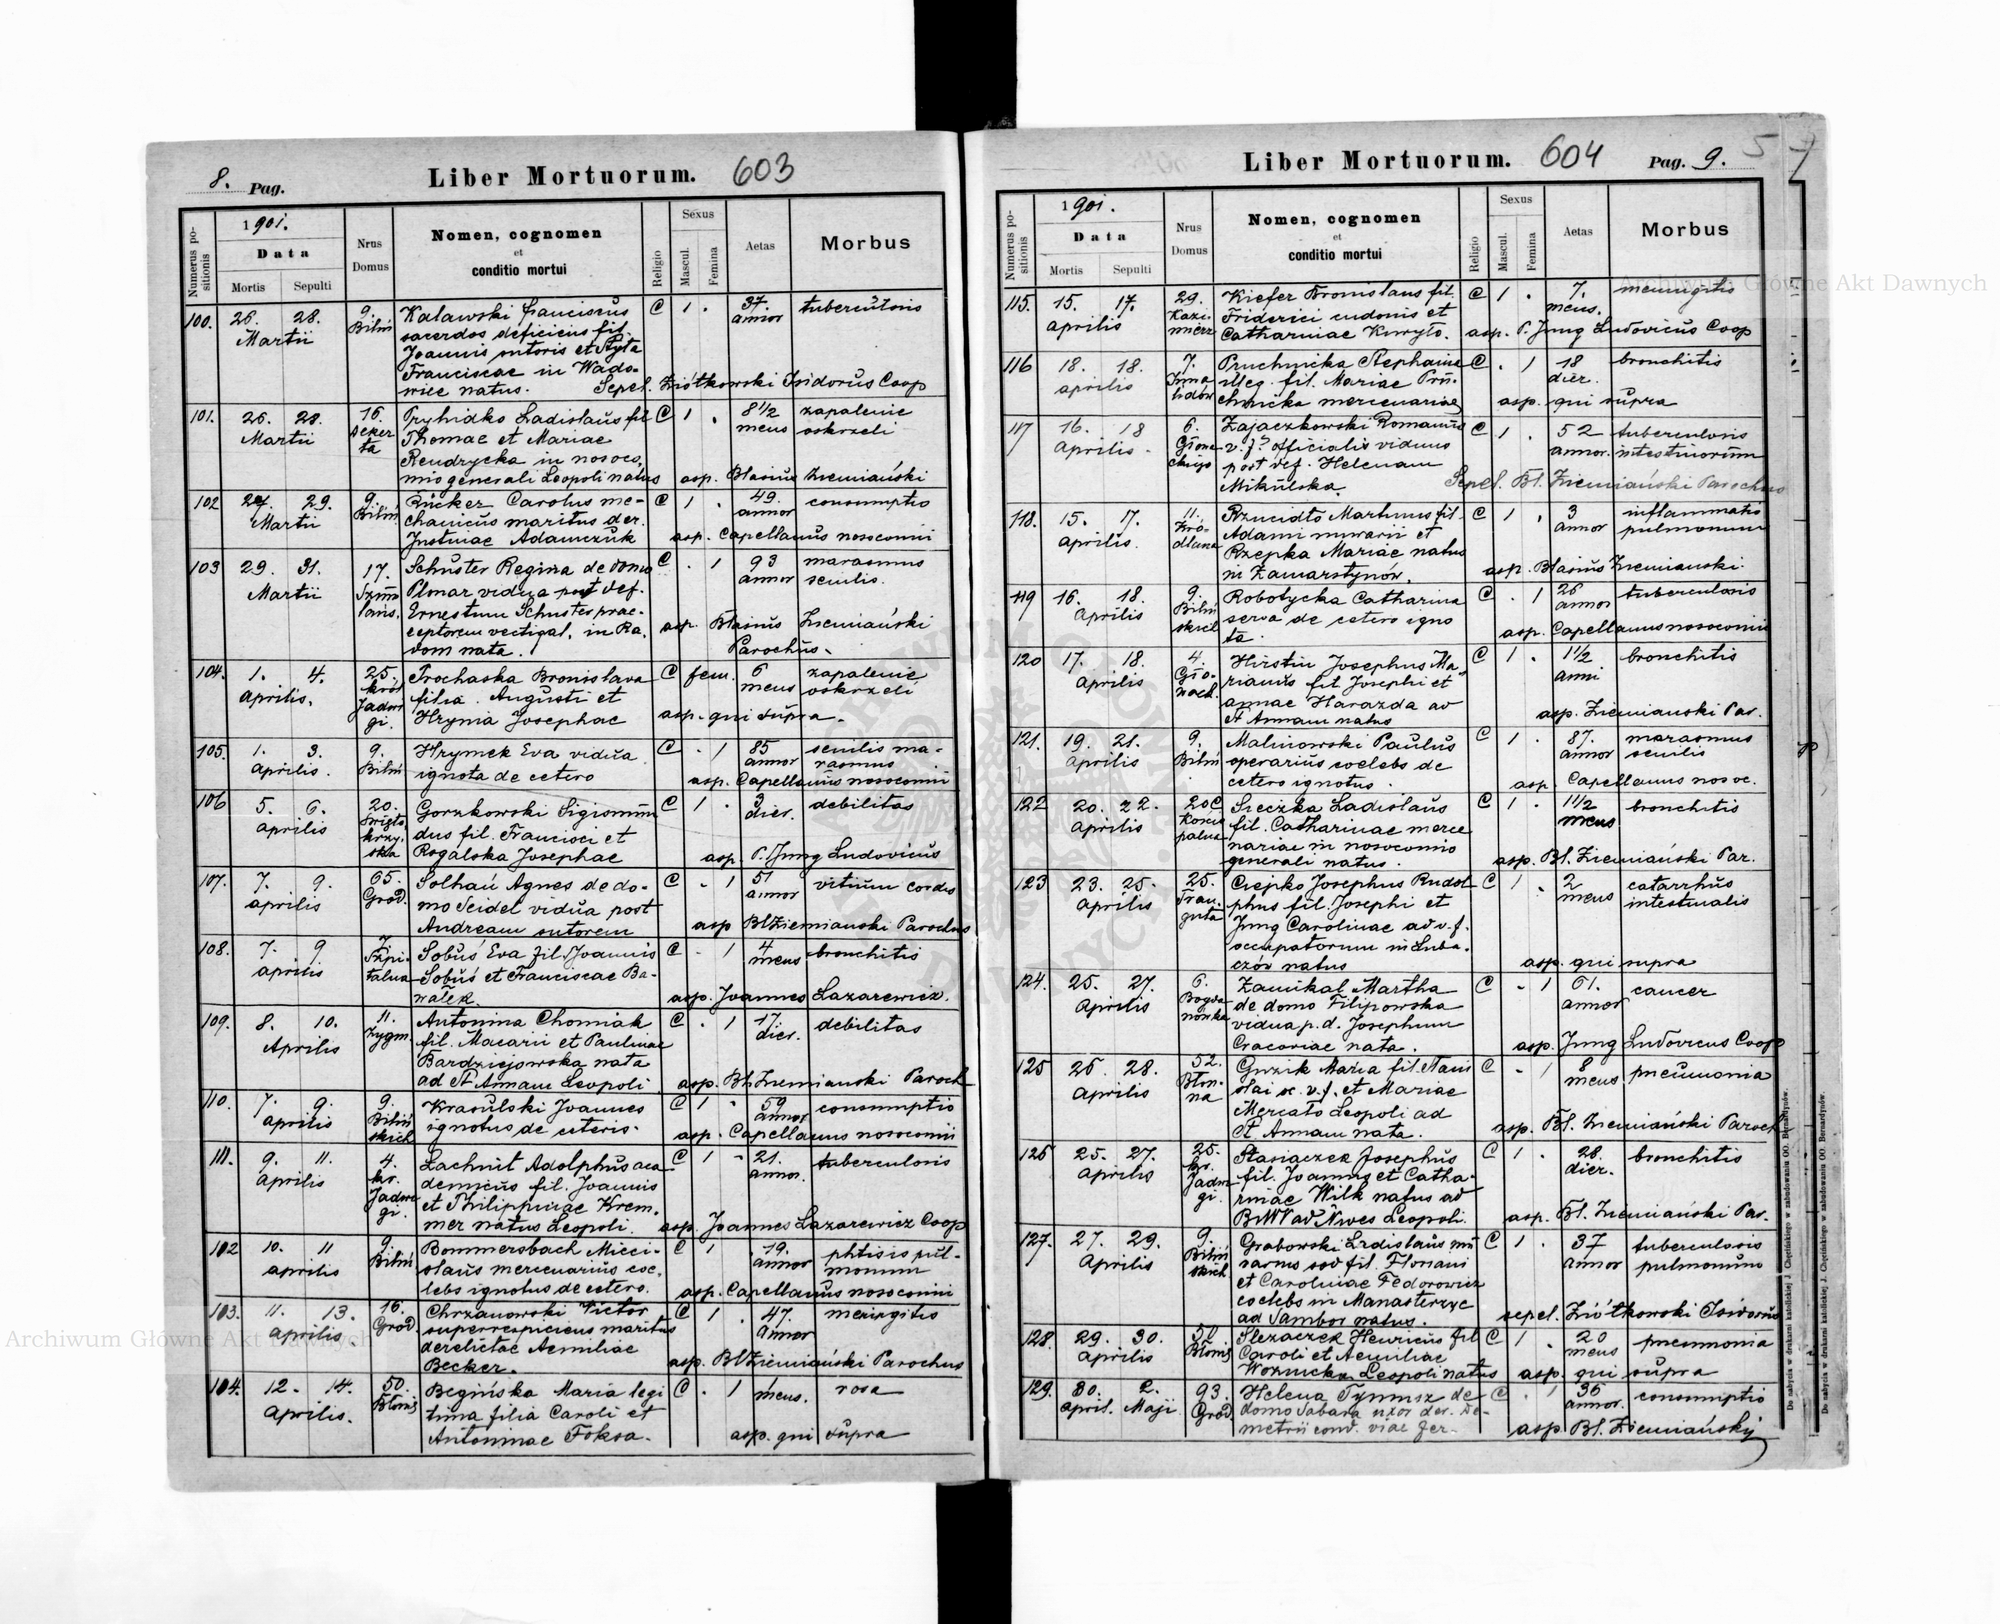 8. Pag.
Liber Mortuorum. 603
Numerus positionis
1901.
Data
Mortis Sepulti
Nrus Domus
Nomen, cognomen
et
conditio mortui
Religio
Sexus
Mascul. Femina
Aetas
Morbus
100. 26. 28. 9. Kalawski Franciscus C 1 . 37 tuberculosis
Martii Biliń sacerdos deficiens fil. annor
Joannis sutoris et Styła
Franciscae in Wado-
wice natus. Sepel. Ziółkowski Isidorus Coop
101. 26. 28. 16. Pryhidko Ladislaus fil C 1 . 8 1/2 zapalenie
Martii Thomae et Mariae meus oskrzeli
ta Rendrycka in nosoco,
mio generali Leopoli natus asp. Blasius Ziemiański
102 27. 29. 9. Rücker Carolus me- C 1 . 49. consumptio
Martii Biliń chanicus maritus der. annor
Justinae Adamczuk asp. Capellanus nosocomii
103 29. 31. 17. Schuster Regina de domo C . 1 93 marasmus
Martii vidua post def. annor senilis.
Ernestum Schuster prae-
ceptorem vectigal. in Ra, asp. Blasius Ziemiański
dom nata. Parochus.
104. 1. 4. 25. Prochaska Bronislava C fem. 6 zapalenie
Aprilis. król filia Augusti et meus oskrzeli
Jadwi Hrynia Josephae asp. qui supra.
gi.
105. 1. 3. 9. Hrymek Eva vidua C . 1 85 senilis ma-
Aprilis. Biliń ignota de cetero annor rasmus
asp. Capellanus nosocomii
106 5. 6. 20. Gorzkowski Sigismun C 1 . 3 debilitas
aprilis Święto dus fil. Francisci et dier.
krzy. Rogalska Josephae asp. P. Jung Ludovicus
ska
107. 7. 9. 65. Solhań Agnes de do- C . 1 51 vitium cordis
aprilis Grod. mo Seidel vidua post annor
Andream sutorem asp Bl Ziemianski Parochus
108. 7. 9 7 Sobuś Eva fil. Joannis C . 1 4 bronchitis
aprilis Szpi- Sobuś et Franciscae Ba- meus
talna wałek. asp. Joannes Lazarewicz.
109. 8. 10. 11. Antonina Chomiak C . 1 17 debilitas
Aprilis Zygm. fil. Macarii et Paulinae dier.
Bardziejowska nata
ad St Annam Leopoli asp. Bl. Ziemianski Paroch
110. 7. 9. 9. Krasulski Joannes C 1 . 59 consumptio
aprilis Biliń ignotus de ceteris. annor
skich asp. Capellanus nosocomii
111. 9. 11. 4. Lachnit Adolphus aca C 1 . 21. tuberculosis
aprilis kr. demicus fil. Joannis annor.
Jadwi et Philippinae Krem-
gi. mer natus Leopoli. asp. Joannes Lazarewicz Coop
102 10. 11 9. Bommersbach Mieci- C 1 . 19. phtisis pul-
aprilis Biliń slaus mercenarius coe, annor monum
lebs ignotus de cetero. asp. Capellanus nosocomii
103. 11. 13. 16. Chrzanowski Victor C 1 . 47. meningitis
aprilis Grod. superrespiciens maritus annor
derelictae Aemiliae
Becker. asp. Bl Ziemiański Parochus
104. 12. 14. 50. Begińska Maria legi C . 1 meus. rosa
aprilis. Błonie tima filia Caroli et
Antoninae Foksa. asp. qui supra
Liber Mortuorum. 604 Pag. 9.
Numerus positionis
1901.
Data
Mortis Sepulti
Nrus Domus
Nomen, cognomen
et
conditio mortui
Religio
Sexus
Mascul. Femina
Aetas
Morbus
115. 15. 17. 29. Kiefer Bronislaus fil. C 1 . 7. meningitis
aprilis Kazi- Friderici et meus.
mierz Catharinae Kuryło. asp. P. Jung Ludovicus Coop
116 18. 18. 7. Pruchnicka Stephanie C . 1 18 bronchitis
aprilis Inwa illeg. fil. Mariae Pru- dier.
lidów chnicka mercenariae asp. qui supra
117 16. 18 6. Zajaczkowski Romanus C 1 . 52 tuberculosis
Aprilis. v. j. officialis viduus annor. intestinorum
post def. Helenam
Mikulska. Sepel. Bl. Ziemiański Parochus
118. 15. 17. 11. Rzucidło Martinus fil. C 1 . 3 inflammatio
aprilis. Źró- Adami murarii et annor pulmonum
dlana Rzepka Mariae natus
in Zamarstynów. asp. Blasius Ziemianski.
119 16. 18. 9. Robotycka Catharina C . 1 26 tuberculosis
Aprilis Biliń serva de cetero igno annor
skich ta. asp. Capellanus nosocomii
120 17. 18. 4. Hirstin Josephus Ma C 1 . 1 1/2 bronchitis
aprilis rianus fil Josephi et anni
annae Harazda ad
St Annam natus asp. Ziemianski Par.
121. 19. 21. 9. Malinowski Paulus C 1 . 87. marasmus
Aprilis Biliń operarius coelebs de annor senilis
cetero ignotus. asp. Capellanus nosoc.
122 20. 22. 20 C Sieczka Ladislaus C 1 . 1 1/2 bronchitis
aprilis fil. Catharinae merce meus
palna nariae in nosocomio
generali natus. asp. Bl. Ziemiański Par.
123 23. 25. 25. Ciepko Josephus Rudol C 1 . 2 catarrhus
Aprilis Trau- phus fil. Josephi et meus intestinalis
guta Jung Carolinae ad v. f.
occupatorum in Luba-
czów natus asp. qui supra
124. 25. 27. 6. Zamikal Martha C . 1 61. cancer
Aprilis Bogda de domo Filipowska annor
nówka vidua p. d. Josephum
Cracoviae nata. asp. Jung Ludovicus Coop
125 26. 28. 52. Guzik Maria fil. Stanis C . 1 8 pneumonia
Aprilis Bło- lai et Mariae meus
na Mercato Leopoli ad
St. Annam nata. asp. Bl. Ziemiański Paroch
126 25. 27. 25. Stasiaczek Josephus C 1 . 28. bronchitis
aprilis kr. fil. Joannis et Catha- dier.
Jadwi rinae Wilk natus ad
gi. Leopoli. asp. Bl. Ziemiański Par.
127. 27. 29. 9. Grabowski Ladislaus mu C 1 . 37 tuberculosis
Aprilis Biliń rarius fil. Floriani annor pulmonum
skich et Carolinae Fedorowicz
coelebs in Manasterzyc
ad Sambor natus. sepel. Ziółkowski Isidorus
128. 29. 30. 50 Slezaczek Henricus fil C 1 . 20 pneumonia
Aprilis Błonie Caroli et Aemiliae meus
Woznicka Leopoli natus asp. qui supra
129. 30. 2. 93. Helena Tymusz de C . 1 36 consumptio
April. Maji Grod. domo Sabara uxor der. De- annor.
metrii cond. viae fer- asp Bl. Ziemiański
Do nabycia w drukarni katolickiej J. Chęcińskiego w zabudowaniu OO. Bernardynów.
Do nabycia w drukarni katolickiej J. Chęcińskiego w zabudowaniu OO. Bernardynów.
Archiwum Główne Akt Dawnych
Archiwum Główne Akt Dawnych